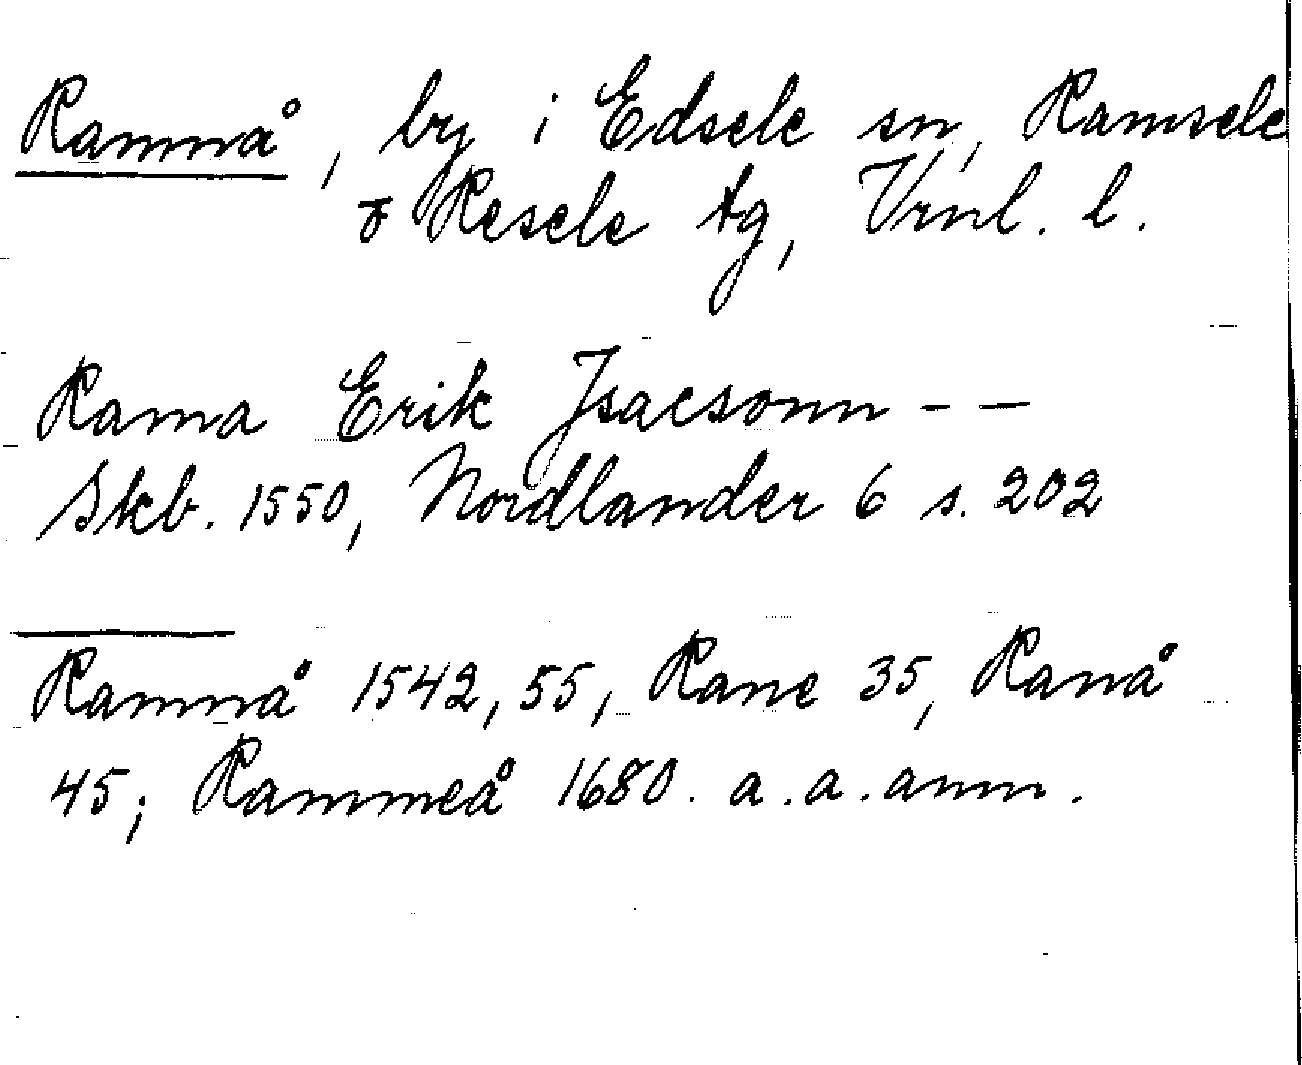 Ramnå, by i Edsele sn, Ramsele
o Resele tg, Vrnl. l.
Rama Erik Jsacsonn - —
Skb. 1550, Nordlander 6 s. 202
Ramnå 1542, 55, Rane 35, Ranå
45; Rammeå 1680. a.a. anm.